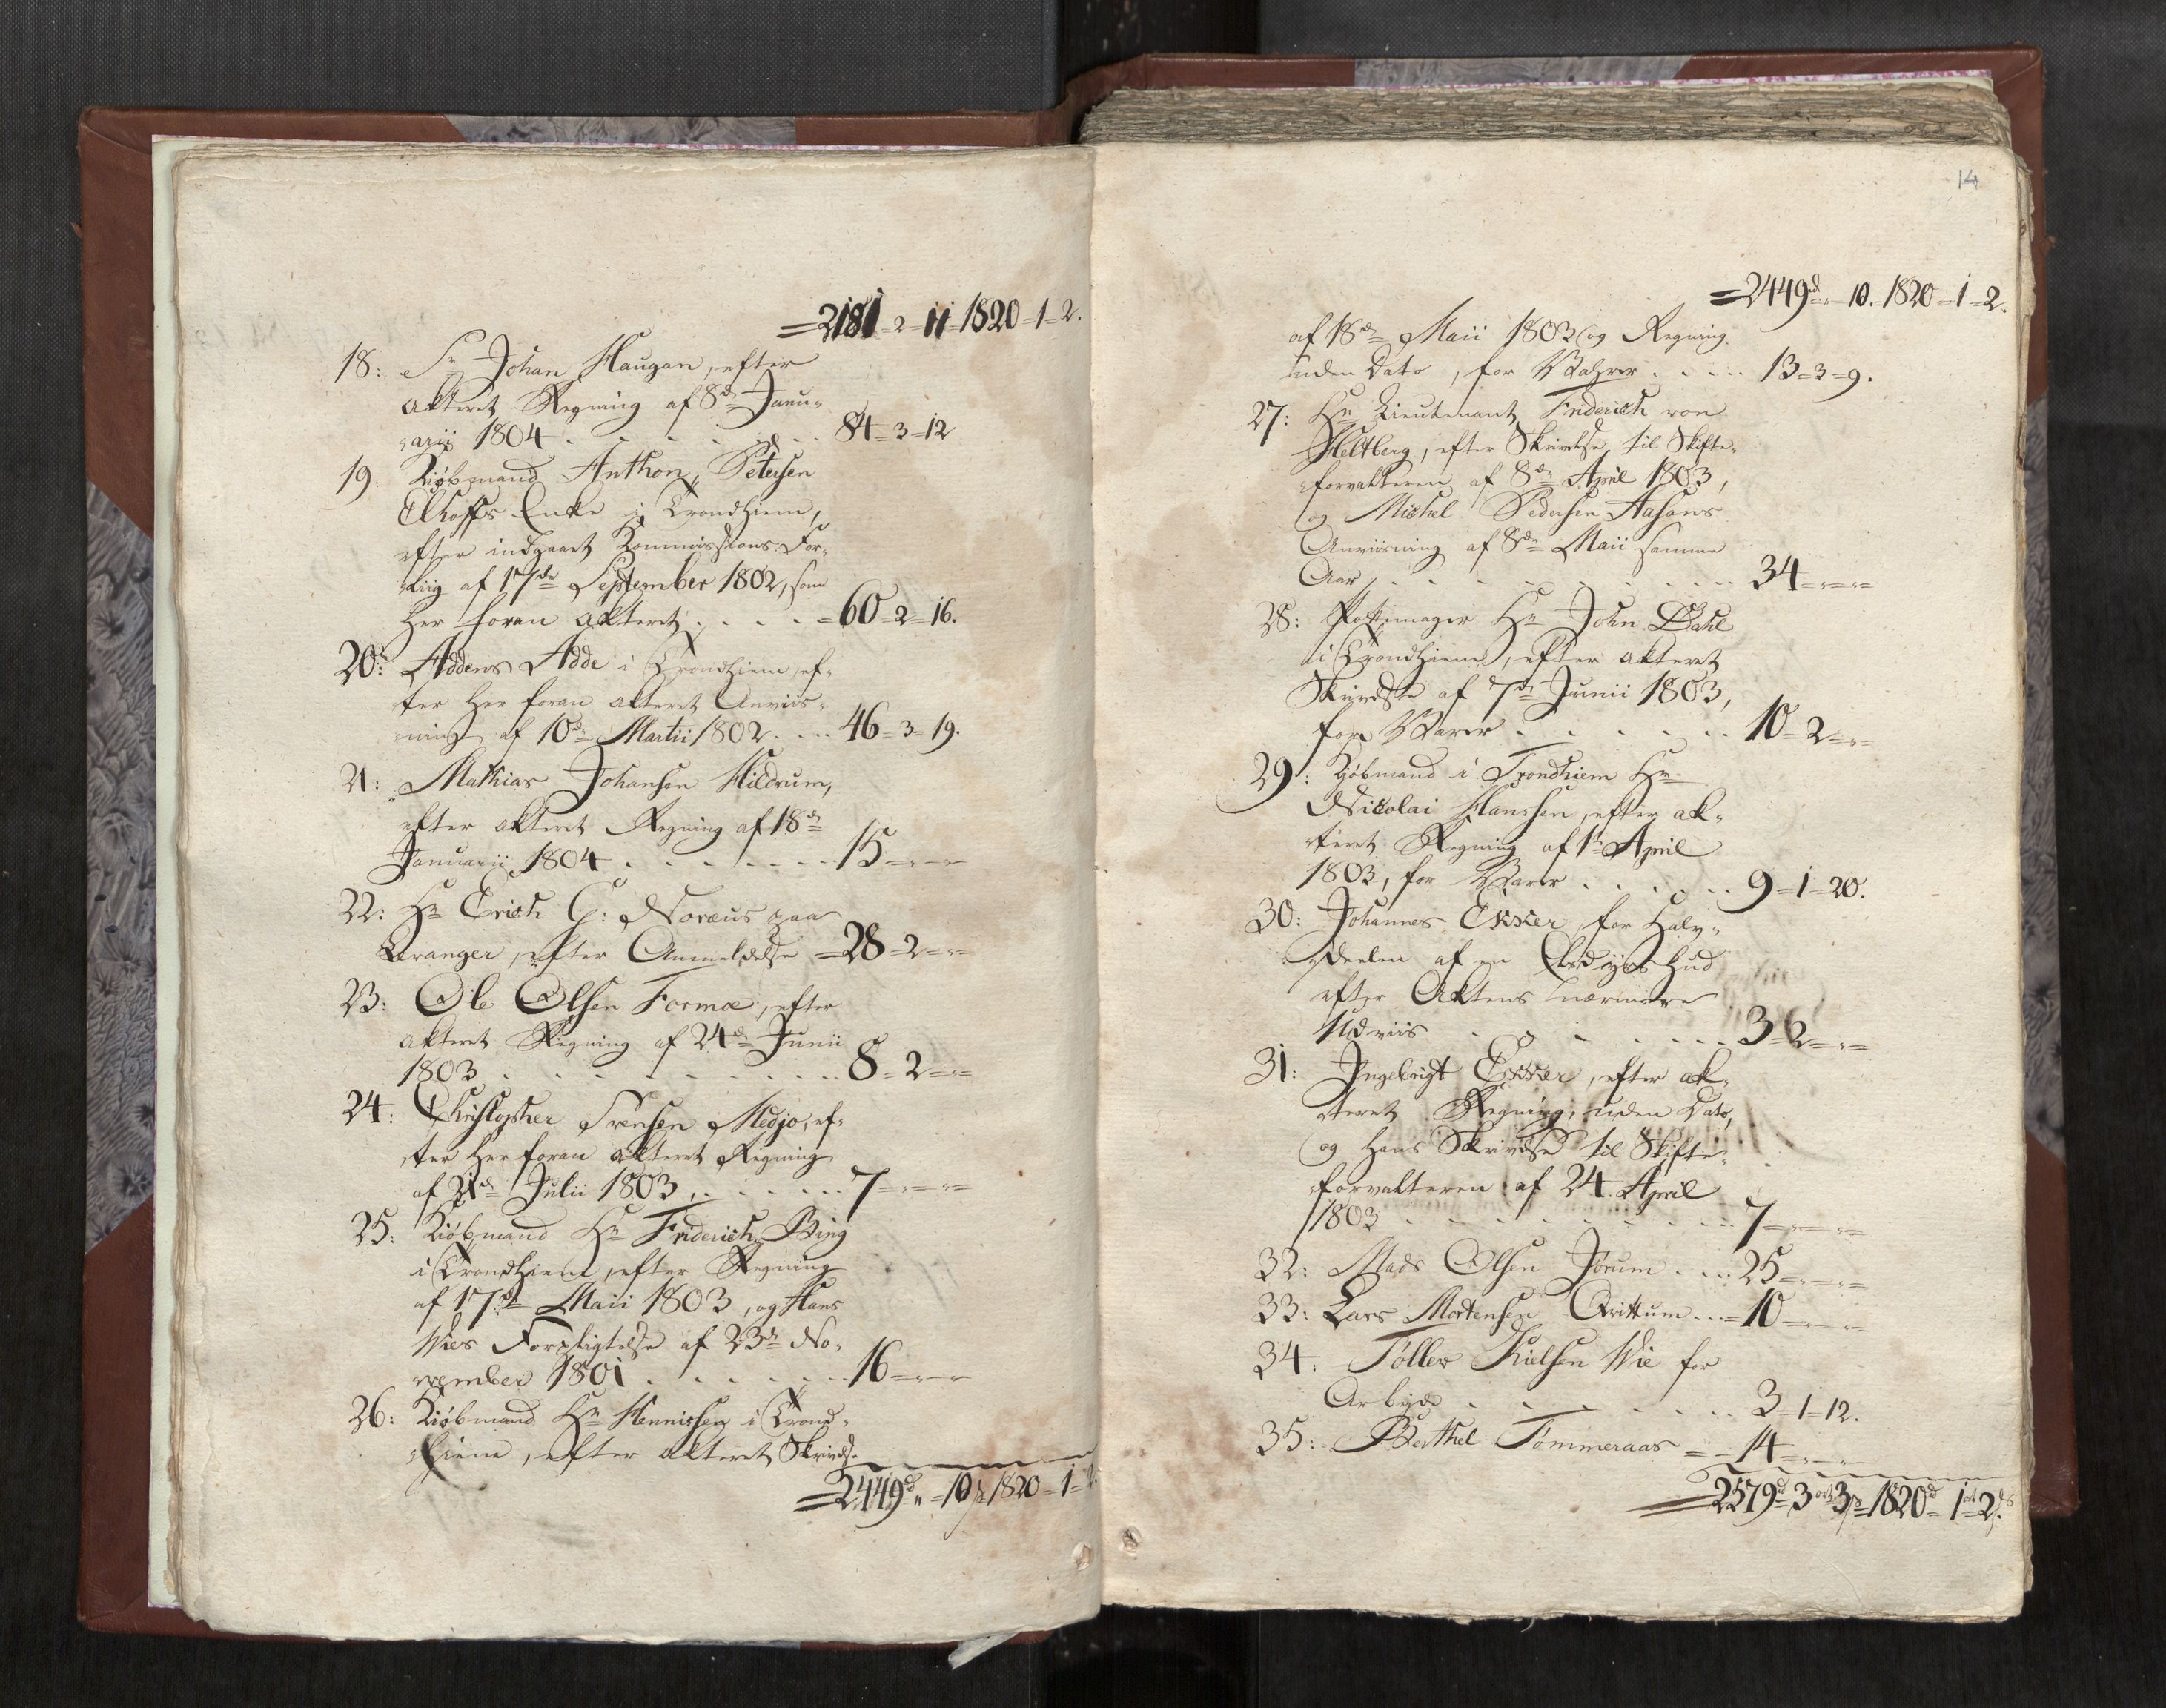 =2181-2-11-1820-1-2.
18: Sr Johan Haugan, efter
akteret Regning af 8de Janu-
arii 1804 . . . . . . 84-3-12
19. Kiøbmand Anthon Petersen
Elhoffs Enke i Trondhiem,
efter indgaaet Kommissions-For-
liig af 17de September 1802, som
her foran akteret . . . . =60-2-16.
20: Addens Adde i Trondhiem, ef-
ter her foran akteret Anviis-
ning af 10de Martii 1802 . . . 46-3-19.
21: Mathias Johansen Hildrum,
efter akteret Regning af 18de
Januarii 1804 . . . . . . 15-"-"
22: Hr Erich G: Noræus paa
Qvanger, efter Anmeldelse =28-2-"
23: Ole Olsen Formoe, efter
akteret Regning af 24de Junii
1803 . . . . . . . . 8-2-"
24: Christopher Svensen Medjo, ef-
ter her foran akteret Regning
af 21de Julii 1803, . . . . . 7-"-"
25: Kiøbmand Hr Friderich Bing
i Trondhiem, efter Regning
af 17de Maii 1803, og Hans
Wies Forpligtelse af 23de No-
vember 1801 . . . . . . 16-"-"
26: Kiøbmand Hr Hennissen i Trond-
hiem, efter akteret Skrivelse
=2449d " -10ſ 1820-1-2.
14
=2449d " -10.-1820-1-2.
af 18de Maii 1803 og Regning
uden Dato, for Vahrer . . . . 13-3-9.
27: Hr Lieutenant Friderich von
Heltberg, efter Skrivelse til Skifte-
forvalteren af 8de April 1803,
og Michel Pedersen Aasans
Anviisning af 8de Maii samme
Aar, . . . . . . . . 34-"-"
28: Pottemager Hr John Dahl
i Trondhiem, efter akteret
Skrivelse af 7de Junii 1803,
for Varer . . . . . . 10-2-"
29: Kjøbmand i Trondhiem Hr
Nicolai Hanssen, efter ak-
teret Regning af 1te April
1803, for Varer . . . . . 9-1-20.
30: Johannes Ekker, for Halv-
deelen af en Elsdyrs Hud
efter Aktens nærmere
Udviis . . . . . . . 3-2-"
31: Ingebrigt Ekker, efter ak-
teret Regning, uden Dato,
og Hans Skrivelse til Skifte-
forvalteren af 24. April
1803 . . . . . . . . 7-"-"
32: Mads Olsen Jørum . . . 25-"-"
33: Lars Mortensen Qvittum . . =10-"-"
34: Töller Kielsen Wie for
Arbeyde . . . . . . . 3-1-12.
35: Berthel Tömmeraas = - 14-"-"
=2579d-3ort3ſ-1820d-1ort2ſ.